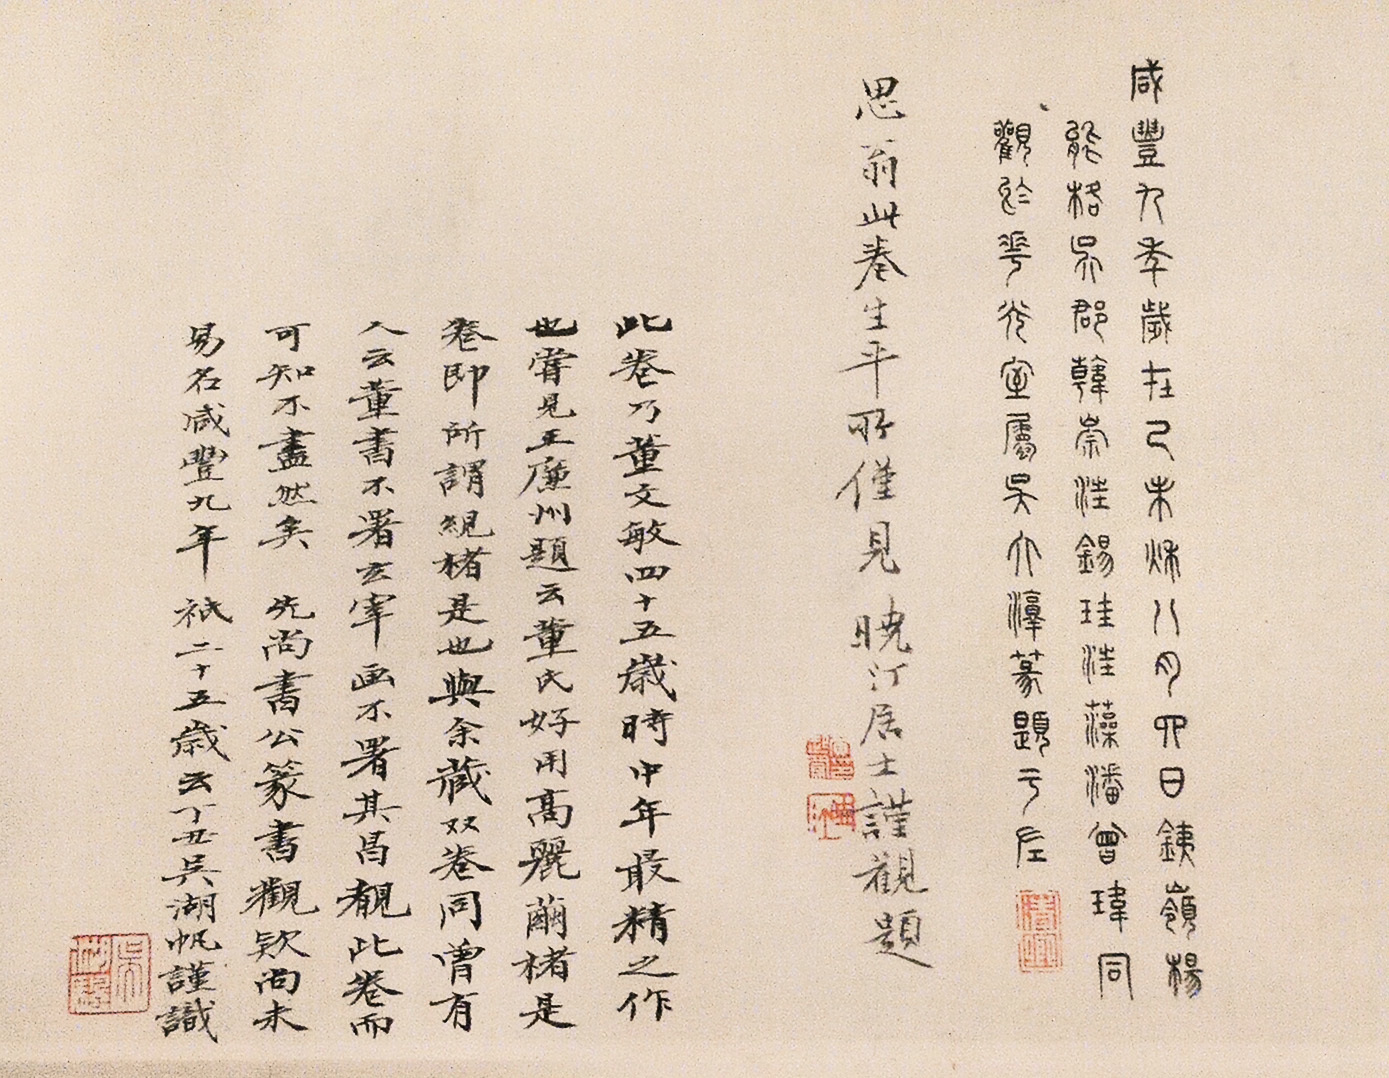 咸豐九年歲在己未秌八月四日銕嶺楊
能格吳郡韓崇汪錫珪汪藻潘曾瑋同
觀於華光室屬吳大淳篆題于左
思翁此卷生平所僅見曉汀居士謹觀題
此卷乃董文敏四十五歲時中年最精之作
也嘗見王廉州題云董氏好用高麗繭楮是
卷即所謂絸楮是也與余藏双卷同曾有
人云董書不署玄宰画不署其昌觀此卷而
可知不盡然矣 先尚書公篆書觀欵尚未
易名咸豐九年 祇二十五歲云丁丑吳湖帆謹識